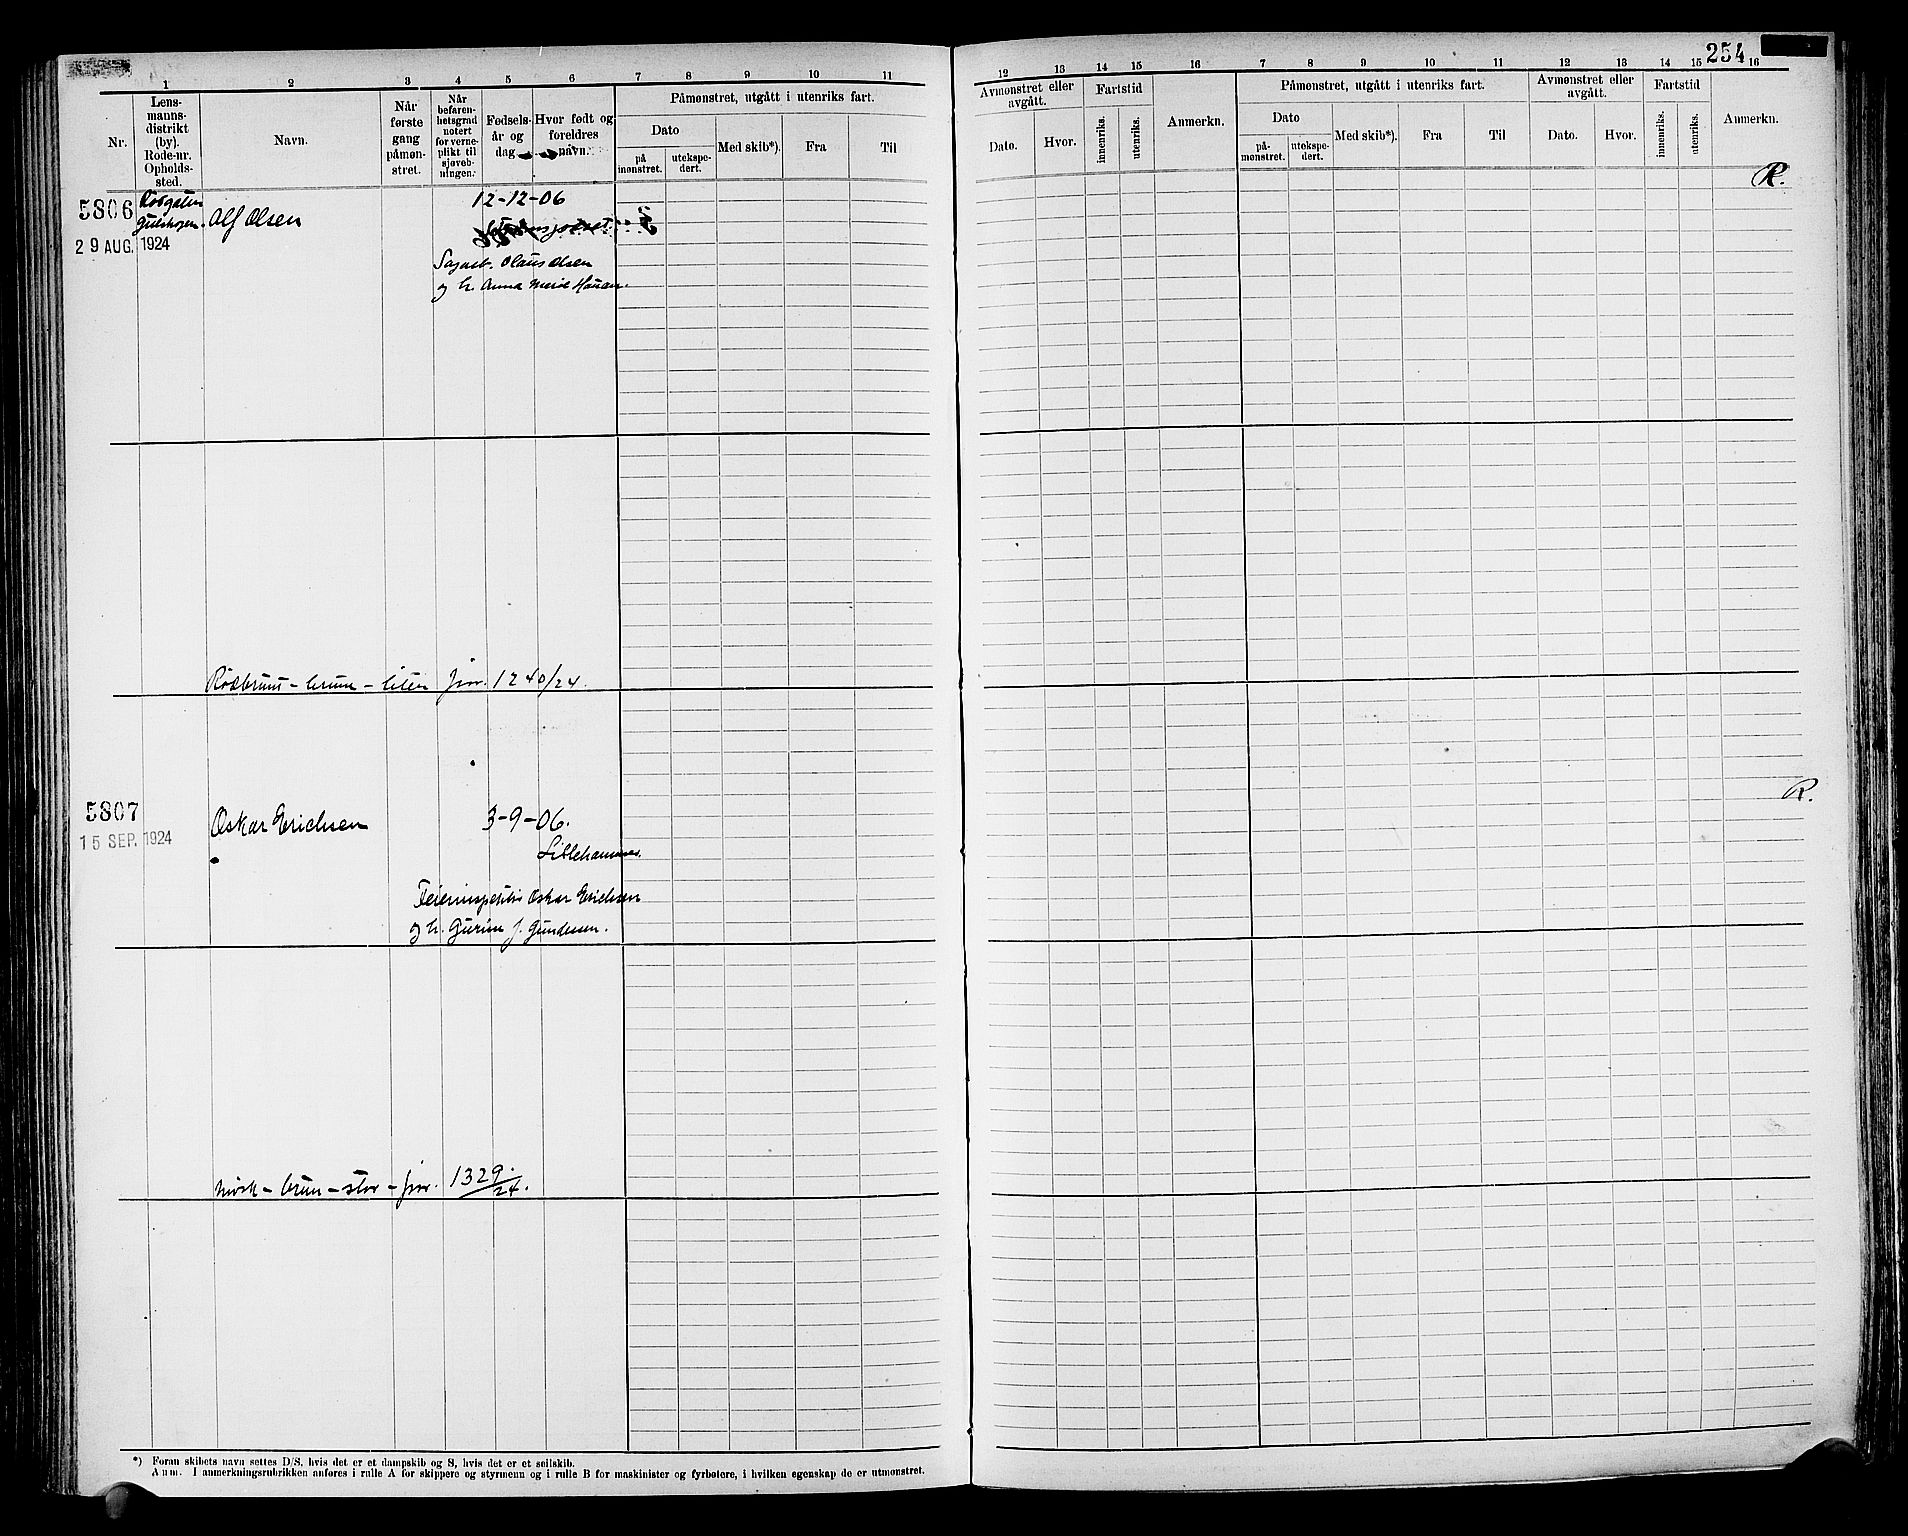 254
1 2 3 4 5 6 7 8 9 10 11
12 13 14 15 16 7 8 9 10 11 12 13 14 15 16
Nr.
Lens-
manns-
distrikt
(by).
Rode-nr.
Opholds-
sted.
Navn.
Når
første
gang
påmøn-
stret.
Når
befaren-
hetsgrad
notert
for verne-
plikt til
sjøveb-
ningen.
Fødsels-
år og
dag
Hvor født og
foreldres
navn.
Påmønstret, utgått i utenriks fart.
Dato
på
mønstret.
utekspe-
dert.
Med skib*).
Fra
Til
Avmønstret eller
avgått.
Dato.
Hvor.
Fartstid
innenriks.
utenriks.
Anmerkn.
Påmønstret, utgått i utenriks fart.
Dato
på-
mønstret.
utekspe-
dert.
Med skib*).
Fra
Til
Avmønstret eller
avgått.
Dato.
Hvor.
Fartstid
innenriks.
utenriks.
Anmerkn.
R.
5806
29 AUG. 1924
Alf Olsen
12-12-06
Claus Olsen
og h. Anna Marie
Rødbrun - brun - liten jnr. 1240/24.
R.
5807
15 SEP. 1924
Oskar Erichsen
3-9-06.
Lillehammer.
Feierinspektør Oskar Erichsen
og h. J. Gundersen.
mørk - brun - stor - jnr. 1329/24.
*) Foran skibets navn settes D/S, hvis det er et dampskib og S, hvis det er et seilskib.
Anm. I anmerkningsrubrikken anføres i rulle A for skippere og styrmenn og i rulle B for maskinister og fyrbøtere, i hvilken egenskap de er utmønstret.